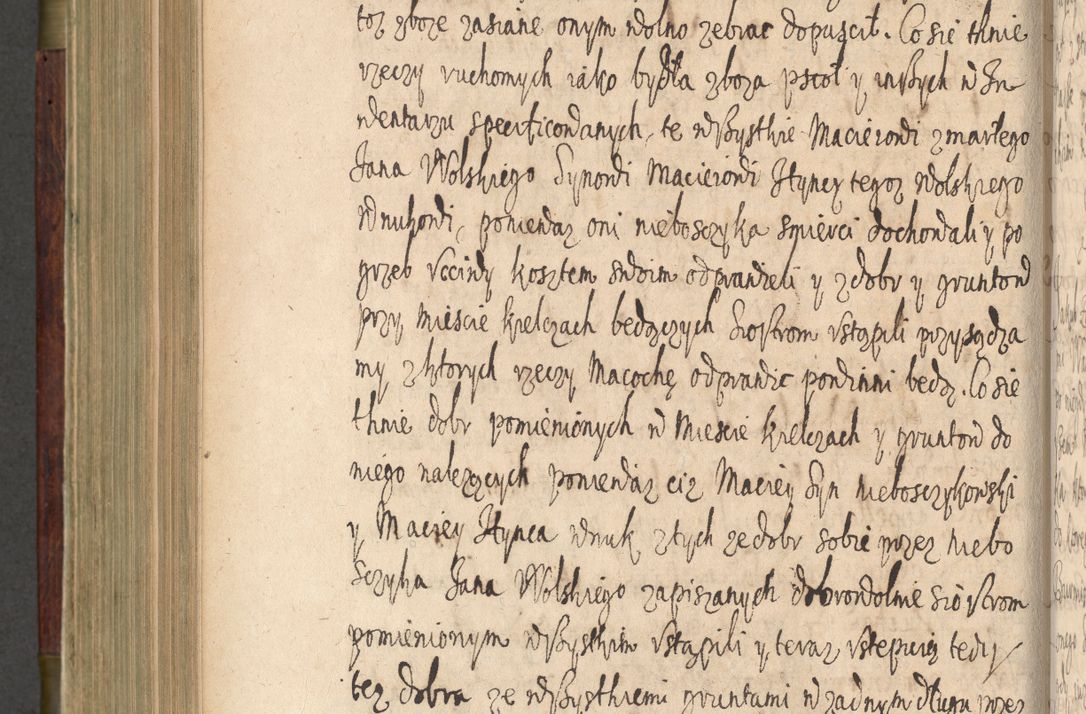 toz zboze zasiane onym wolno zebrac dopuscił. Co sie thnie
rzeczy ruchomych iako bydła zboza pscoł y inszych w In
wentarzu specificowanych, te wszysthie Macieiowi zmarłego
Jana Wolskiego Synowi Macieiowi Hyncy tegoz Wolskiego
Wnukowi, poniewaz oni nieboszczyka smierci dochowali y po
grzeb vcciwy kosztem swoim odprawieli y z dobr y gruntow
przy Miescie Kielczach bedączych Siostrom vstąpili przysądza
my z ktorych rzeczy Macochę odprawic powinni bedą. Co sie
thnie dobr pomienionych w Miescie Kielczach y gruntow do
niego nalezących poniewaz ciz Maciey Syn nieboszczykowski
y Maciey Hynca wnuk z tych ze dobr sobie przez niebo
sczyka Jana Wolskiego zapiszanych dobrowolnie Siostrom
pomienionym wszysthim vstąpili y teraz vstepuią tedy
tez dobra ze wszysthiemi gruntami w zadnym długu przez